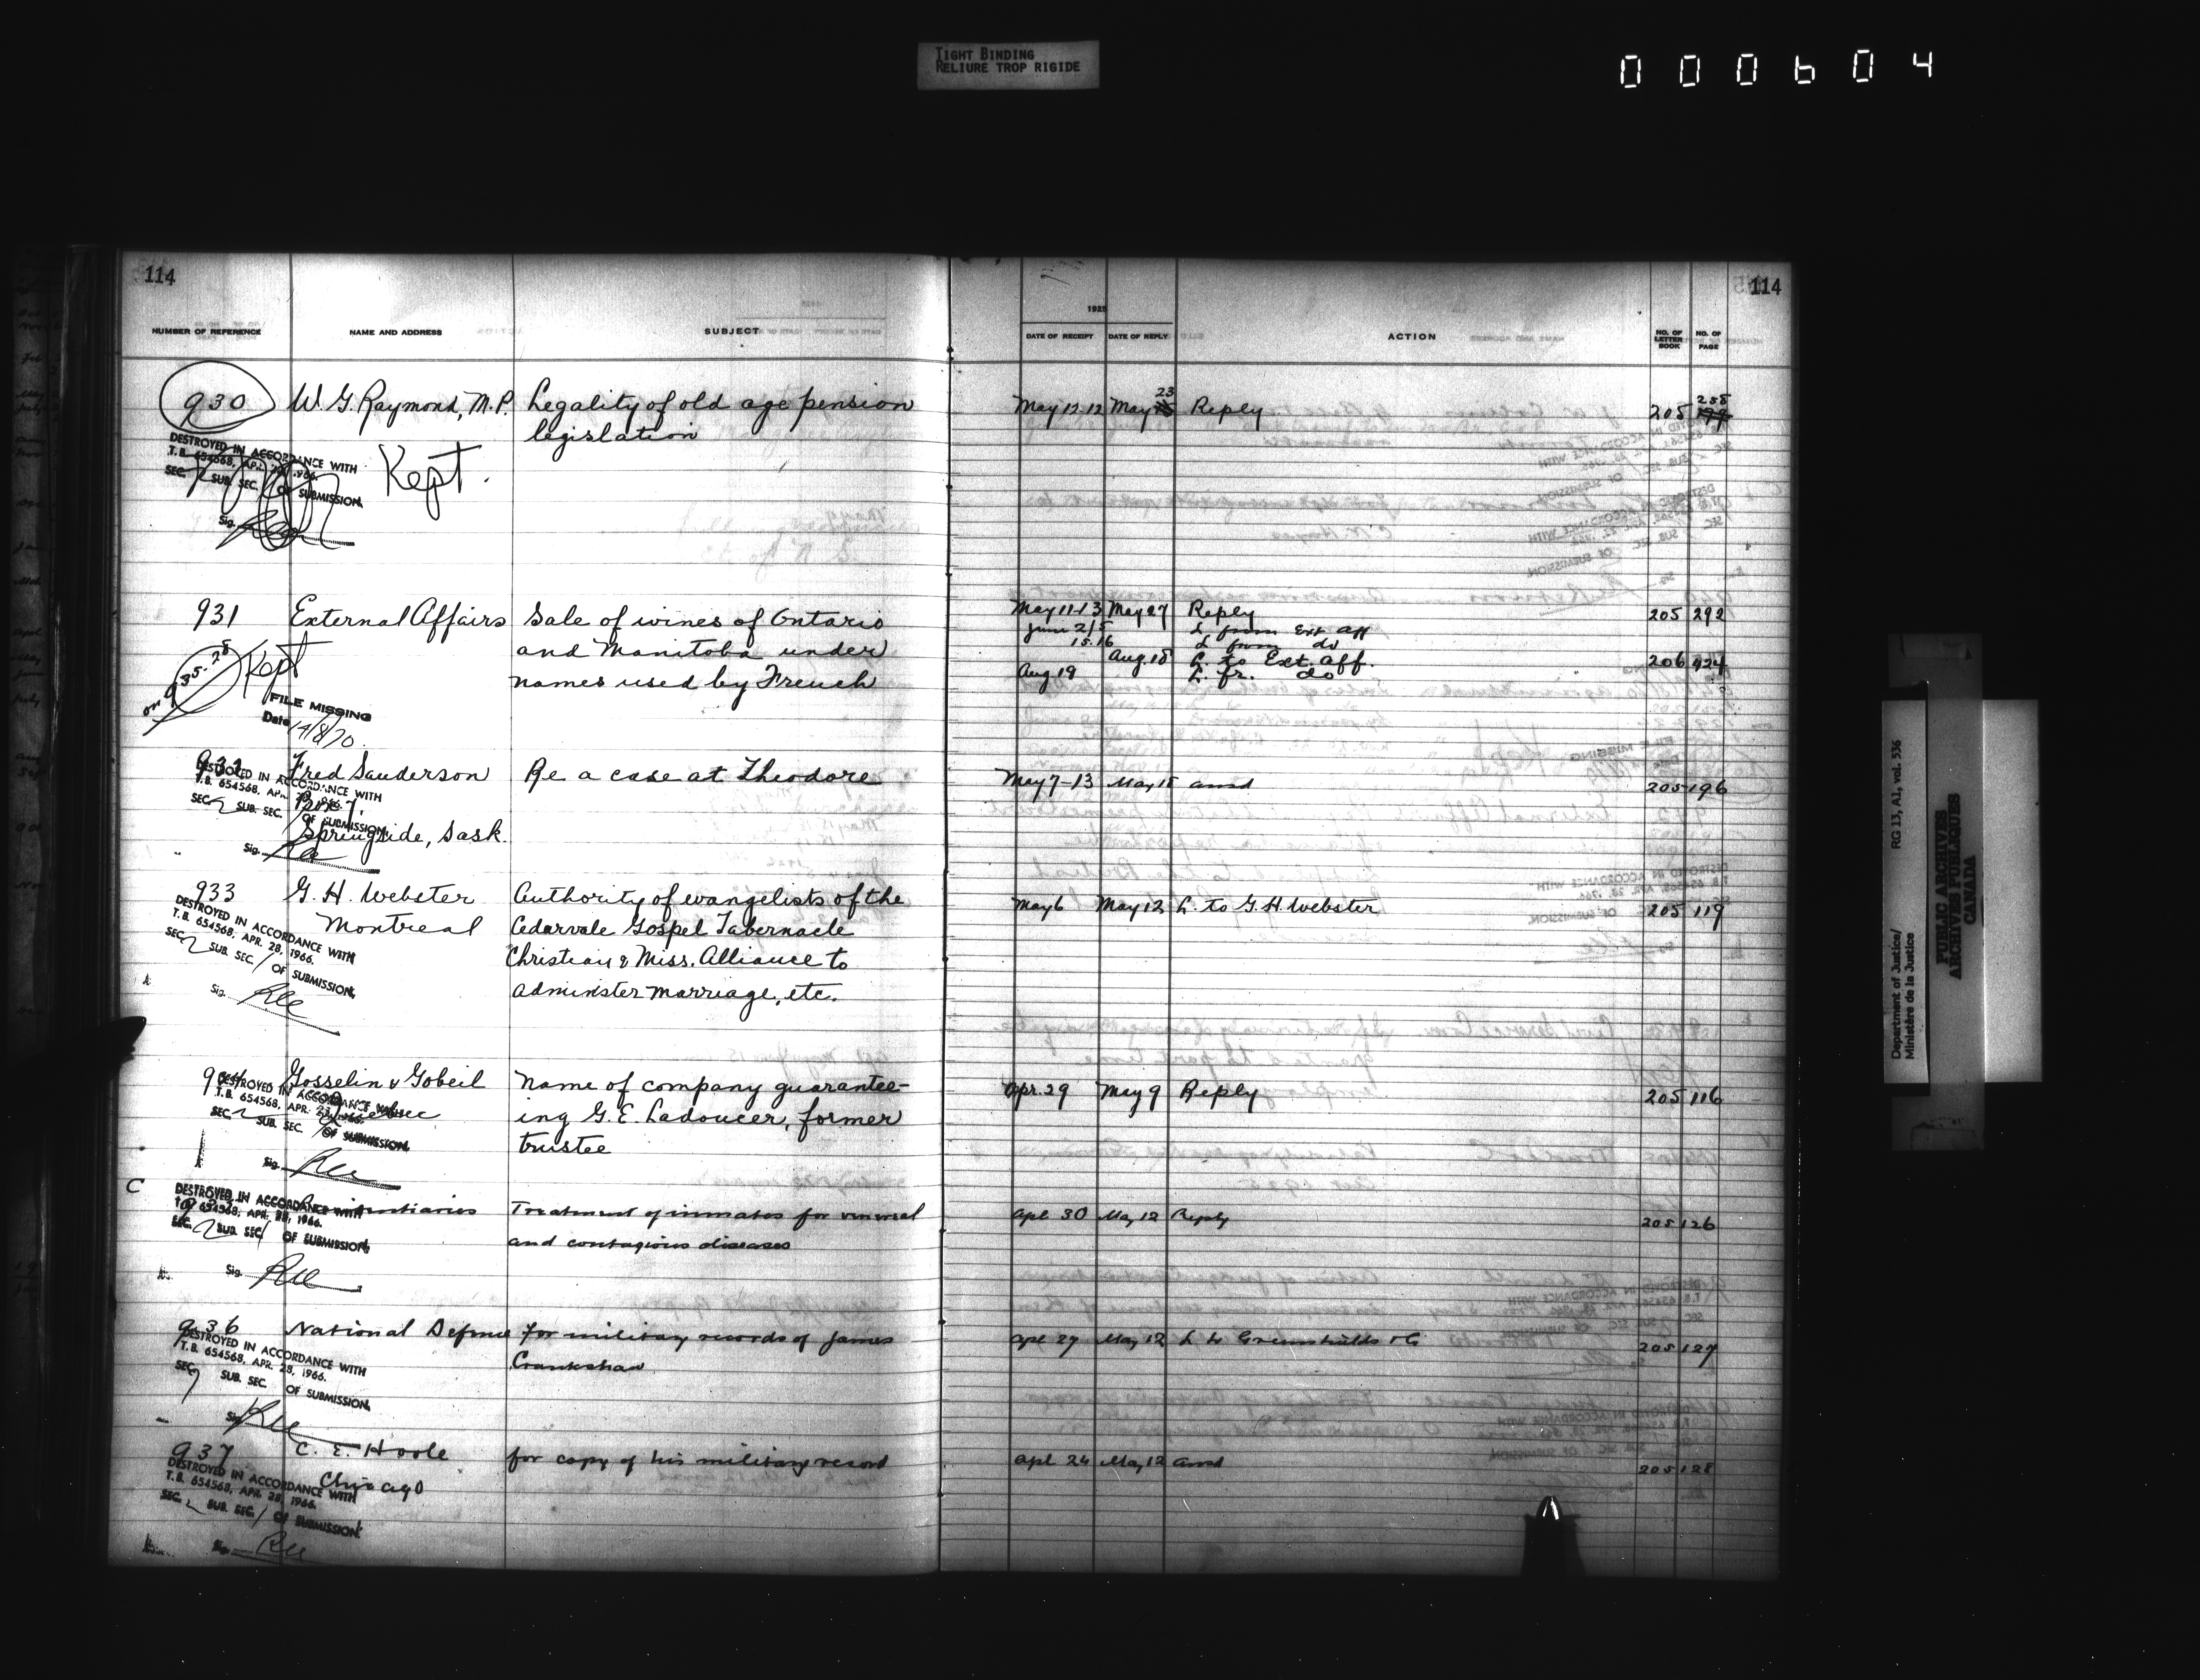 TIGHT BINDING
RELIURE TROP RIGIDE
000604
114
114
NUMBER OF REFERENCE NAME AND ADDRESS SUBJECT
1925
DATE OF RECEIPT DATE OF REPLY ACTION NO. OF LETTER BOOK NO. OF PAGE
930 W. G. Raymond, M.P. Legality of old age pension May 12-12 May 23 Reply 205 255
legislation
DESTROYED IN ACCORDANCE WITH
T.B. 654568, APR. 28, 1966.
SEC. SUB. SEC. OF SUBMISSION.
Sig.
Kept.
931 External Affairs Sale of wines of Ontario May 11-13 May 27 Reply 205 292
and Manitoba under June 2/5 L from Ext Aff
15.16 L from do
names used by French Aug 18 L. to Ext. Aff. 206 424
Aug 19 L. fr. do
on 935-25 Kept
FILE MISSING
Date 14/8/70
932 Fred Sanderson Re a case at Theodore May 7-13 May 15 ansd 205 196
Box 7,
Springside, Sask.
DESTROYED IN ACCORDANCE WITH
T.B. 654568, APR. 28, 1966.
SEC. 2 SUB. SEC. OF SUBMISSION.
Sig.
933 G. H. Webster Authority of evangelists of the May 6 May 12 L. to G. H. Webster 205 119
Montreal Cedarvale Gospel Tabernacle
Christian & Miss. Alliance to
administer marriage, etc.
DESTROYED IN ACCORDANCE WITH
T.B. 654568, APR. 28, 1966.
SEC. 2 SUB. SEC. 1 OF SUBMISSION.
Sig.
934 Gosselin & Gobeil Name of company guarantee- Apr. 29 May 9 Reply 205 116
Quebec ing G. E. Ladoucer, former
trustee
DESTROYED IN ACCORDANCE WITH
T.B. 654568, APR. 28, 1966.
SEC. 2 SUB. SEC. OF SUBMISSION.
Sig.
C
935 Penitentiaries Treatment of inmates for venereal Apl 30 May 12 Reply 205 126
and contagious diseases
DESTROYED IN ACCORDANCE WITH
T.B. 654568, APR. 28, 1966.
SEC. 2 SUB. SEC. 1 OF SUBMISSION.
Sig.
936 National Defence For military records of James Apl 27 May 12 L to Greenshields & Co 205 127
Crankshaw
DESTROYED IN ACCORDANCE WITH
T.B. 654568, APR. 28, 1966.
SEC. SUB. SEC. OF SUBMISSION.
Sig.
937 C. E. Hoole for copy of his military record Apl 24 May 12 ansd 205 128
Chicago
DESTROYED IN ACCORDANCE WITH
T.B. 654568, APR. 28, 1966.
SEC. 2 SUB. SEC. 1 OF SUBMISSION.
Sig.
Department of Justice/ RG 13, A1, vol. 536
Ministère de la Justice
PUBLIC ARCHIVES
ARCHIVES PUBLIQUES
CANADA